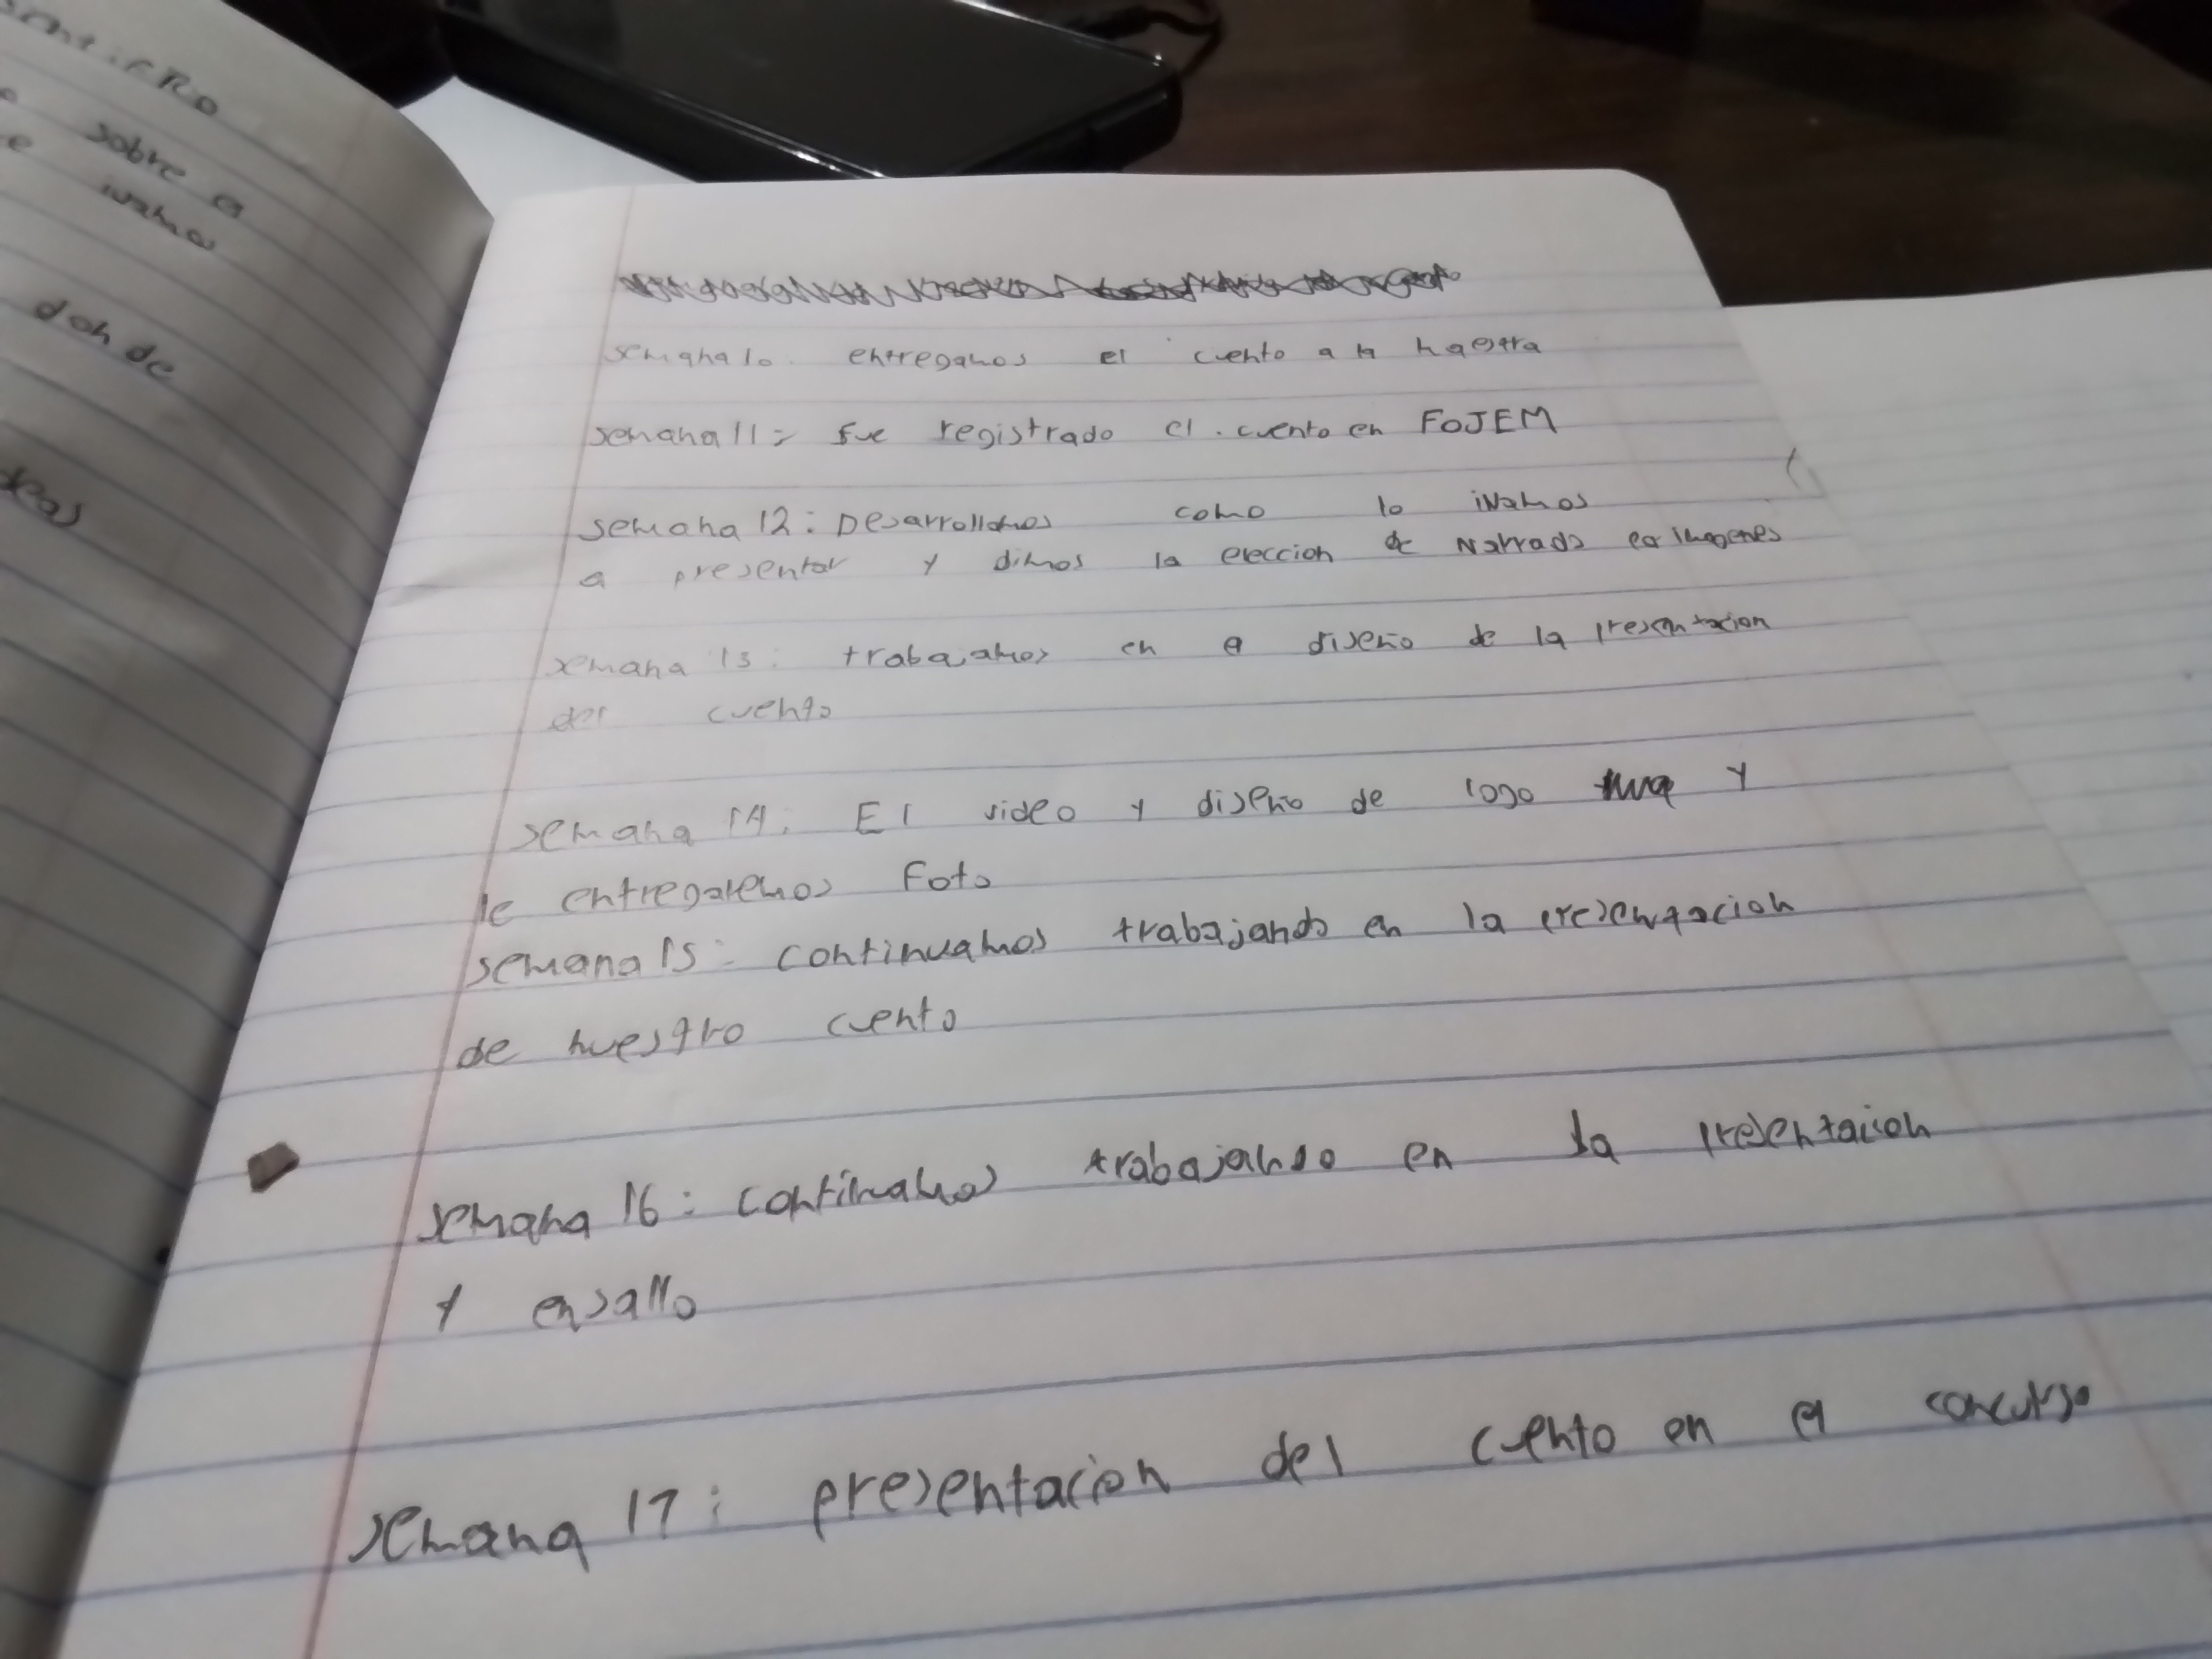 sobre el
donde
semana 10: entregamos el cuento a la maestra
semana 11: fue registrado el cuento en FOJEM
semana 12: Desarrollamos como lo ivamos
a presentar y dimos la eleccion de Narrado por imagenes
semana 13: trabajamos en el diseño de la presentacion
del cuento
semana 14: El video y diseño de logo y
le entregaremos Foto
semana 15: continuamos trabajando en la presentacion
de nuestro cuento
semana 16: continuamos trabajando en la presentacion
y ensallo
semana 17: presentacion del cuento en el concurso